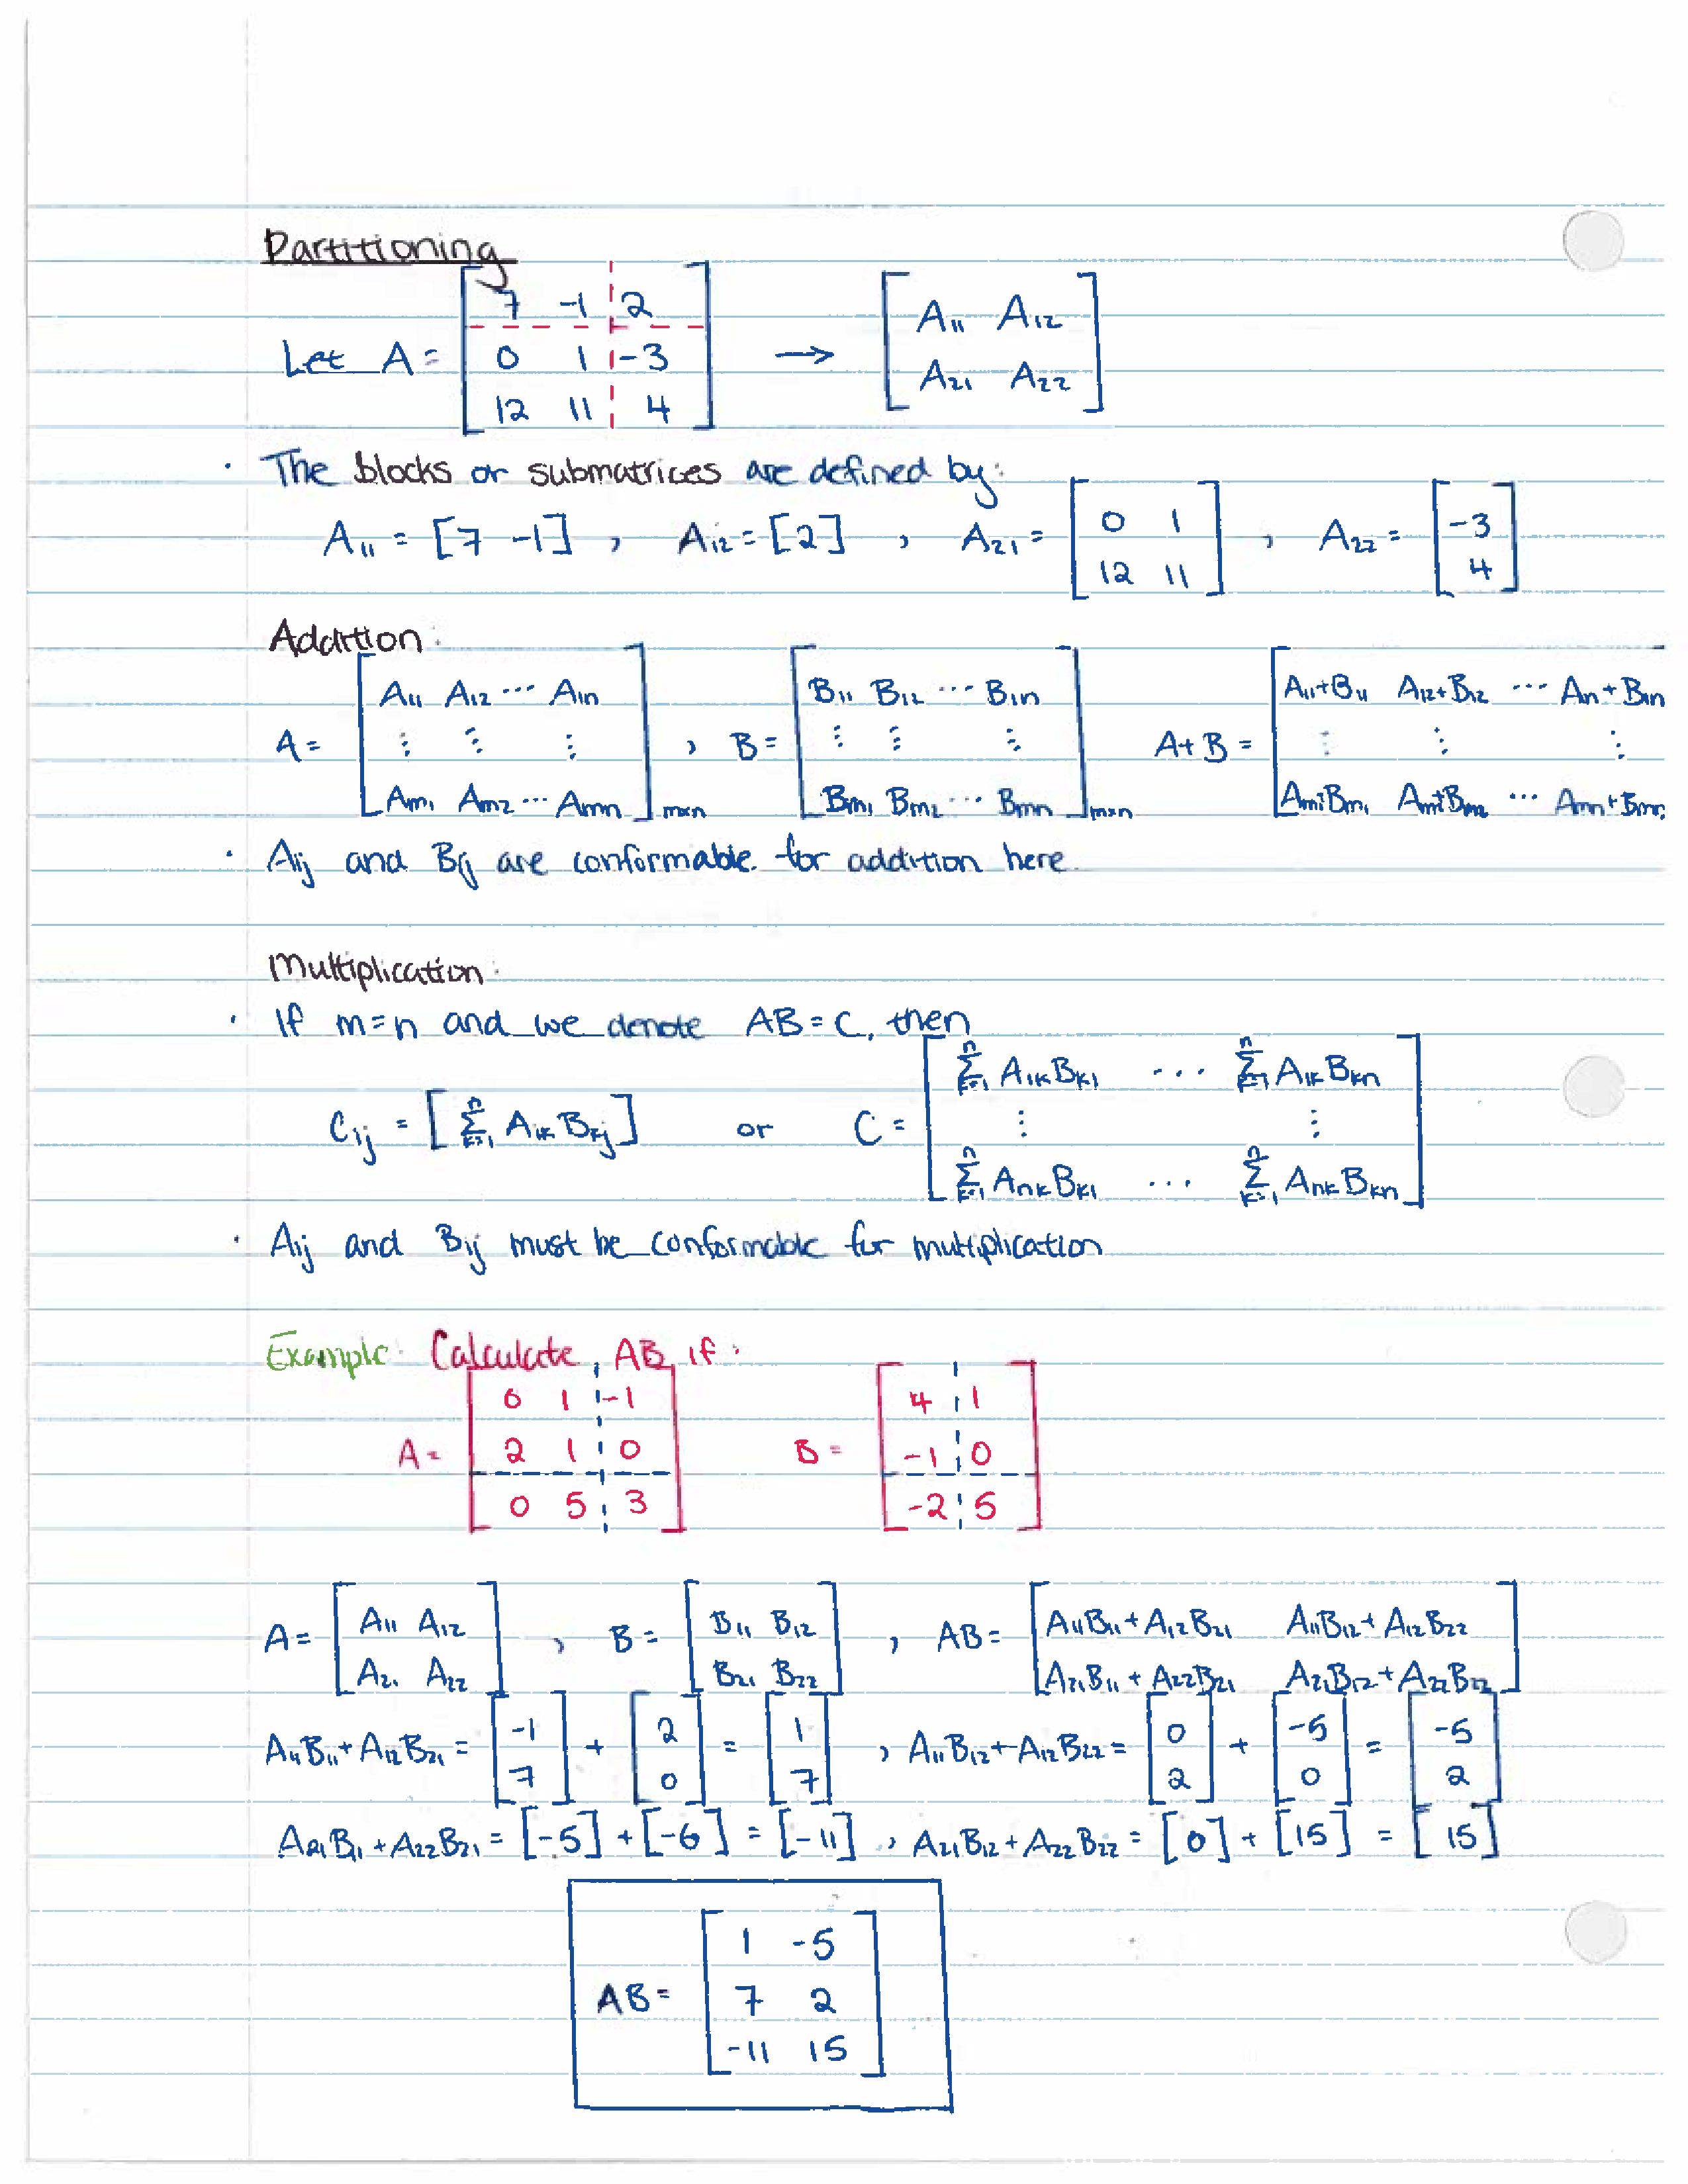 Partitioning
Let A = [ 7 -1 2 ; 0 1 -3 ; 12 11 4 ] → [ A₁₁ A₁₂ ; A₂₁ A₂₂ ]
· The blocks or submatrices are defined by:
A₁₁ = [7 -1] , A₁₂ = [2] , A₂₁ = [ 0 1 ; 12 11 ] , A₂₂ = [ -3 ; 4 ]
Addition:
A = [ A₁₁ A₁₂ ... A₁ₙ ; ⋮ ⋮ ⋮ ; Aₘ₁ Aₘ₂ ... Aₘₙ ]ₘₓₙ , B = [ B₁₁ B₁₂ ... B₁ₙ ; ⋮ ⋮ ⋮ ; Bₘ₁ Bₘ₂ ... Bₘₙ ]ₘₓₙ A + B = [ A₁₁+B₁₁ A₁₂+B₁₂ ... A₁ₙ+B₁ₙ ; ⋮ ⋮ ⋮ ; Aₘ₁+Bₘ₁ Aₘ₂+Bₘ₂ ... Aₘₙ+Bₘₙ
· Aij and Bij are conformable for addition here.
Multiplication:
· If m=n and we denote AB = C, then
Cij = [ Σₖ₌₁ⁿ Aik Bkj ] or C = [ Σₖ₌₁ⁿ A₁ₖBₖ₁ ... Σₖ₌₁ⁿ A₁ₖBₖₙ ; ⋮ ⋮ ; Σₖ₌₁ⁿ AₙₖBₖ₁ ... Σₖ₌₁ⁿ AₙₖBₖₙ ]
· Aij and Bij must be conformable for multiplication
Example: Calculate AB if:
A = [ 0 1 -1 ; 2 1 0 ; 0 5 3 ] B = [ 4 1 ; -1 0 ; -2 5 ]
A = [ A₁₁ A₁₂ ; A₂₁ A₂₂ ] , B = [ B₁₁ B₁₂ ; B₂₁ B₂₂ ] , AB = [ A₁₁B₁₁ + A₁₂B₂₁ A₁₁B₁₂ + A₁₂B₂₂ ; A₂₁B₁₁ + A₂₂B₂₁ A₂₁B₁₂ + A₂₂B₂₂ ]
A₁₁B₁₁ + A₁₂B₂₁ = [ -1 ; 7 ] + [ 2 ; 0 ] = [ 1 ; 7 ] , A₁₁B₁₂ + A₁₂B₂₂ = [ 0 ; 2 ] + [ -5 ; 0 ] = [ -5 ; 2 ]
A₂₁B₁₁ + A₂₂B₂₁ = [-5] + [-6] = [-11] , A₂₁B₁₂ + A₂₂B₂₂ = [0] + [15] = [15]
AB = [ 1 -5 ; 7 2 ; -11 15 ]